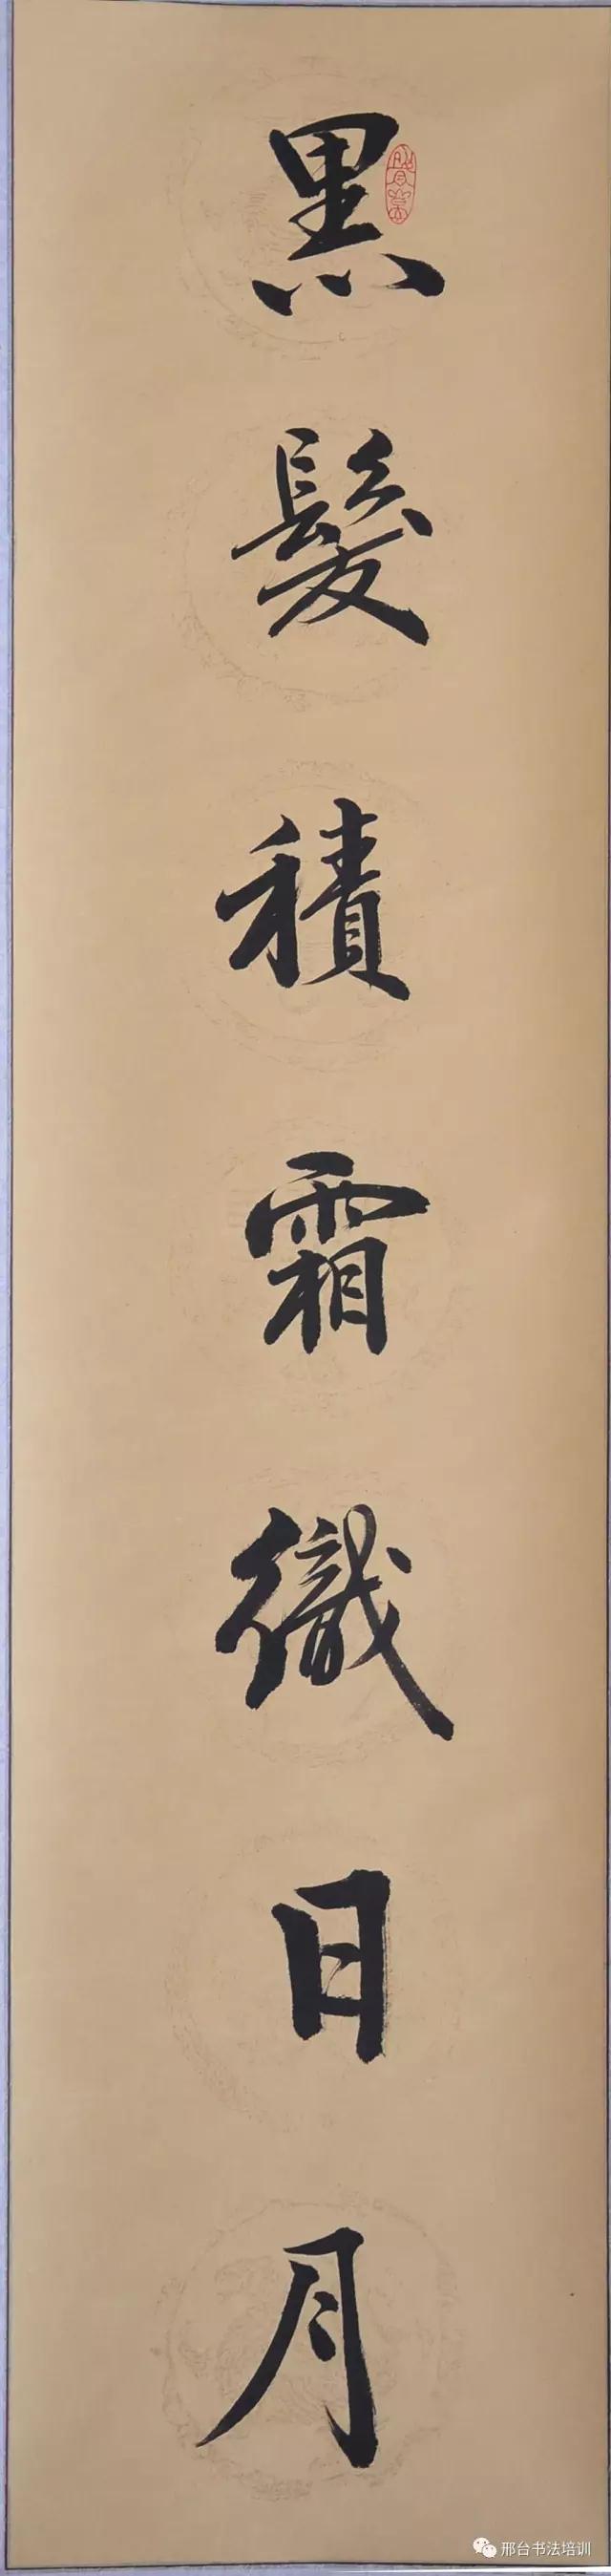 黑髮積霜織日月
邢台书法培训